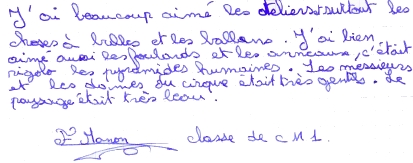 J'ai beaucoup aimé les ateliers surtout les
choses à bulles et les ballons. J'ai bien
aimé aussi les foulards et les anneaux, c'était
rigolo les pyramides humaines. Les messieurs
et les dames du cirque était très gentils. Le
paysage était très beau.
Manon classe de CM1.